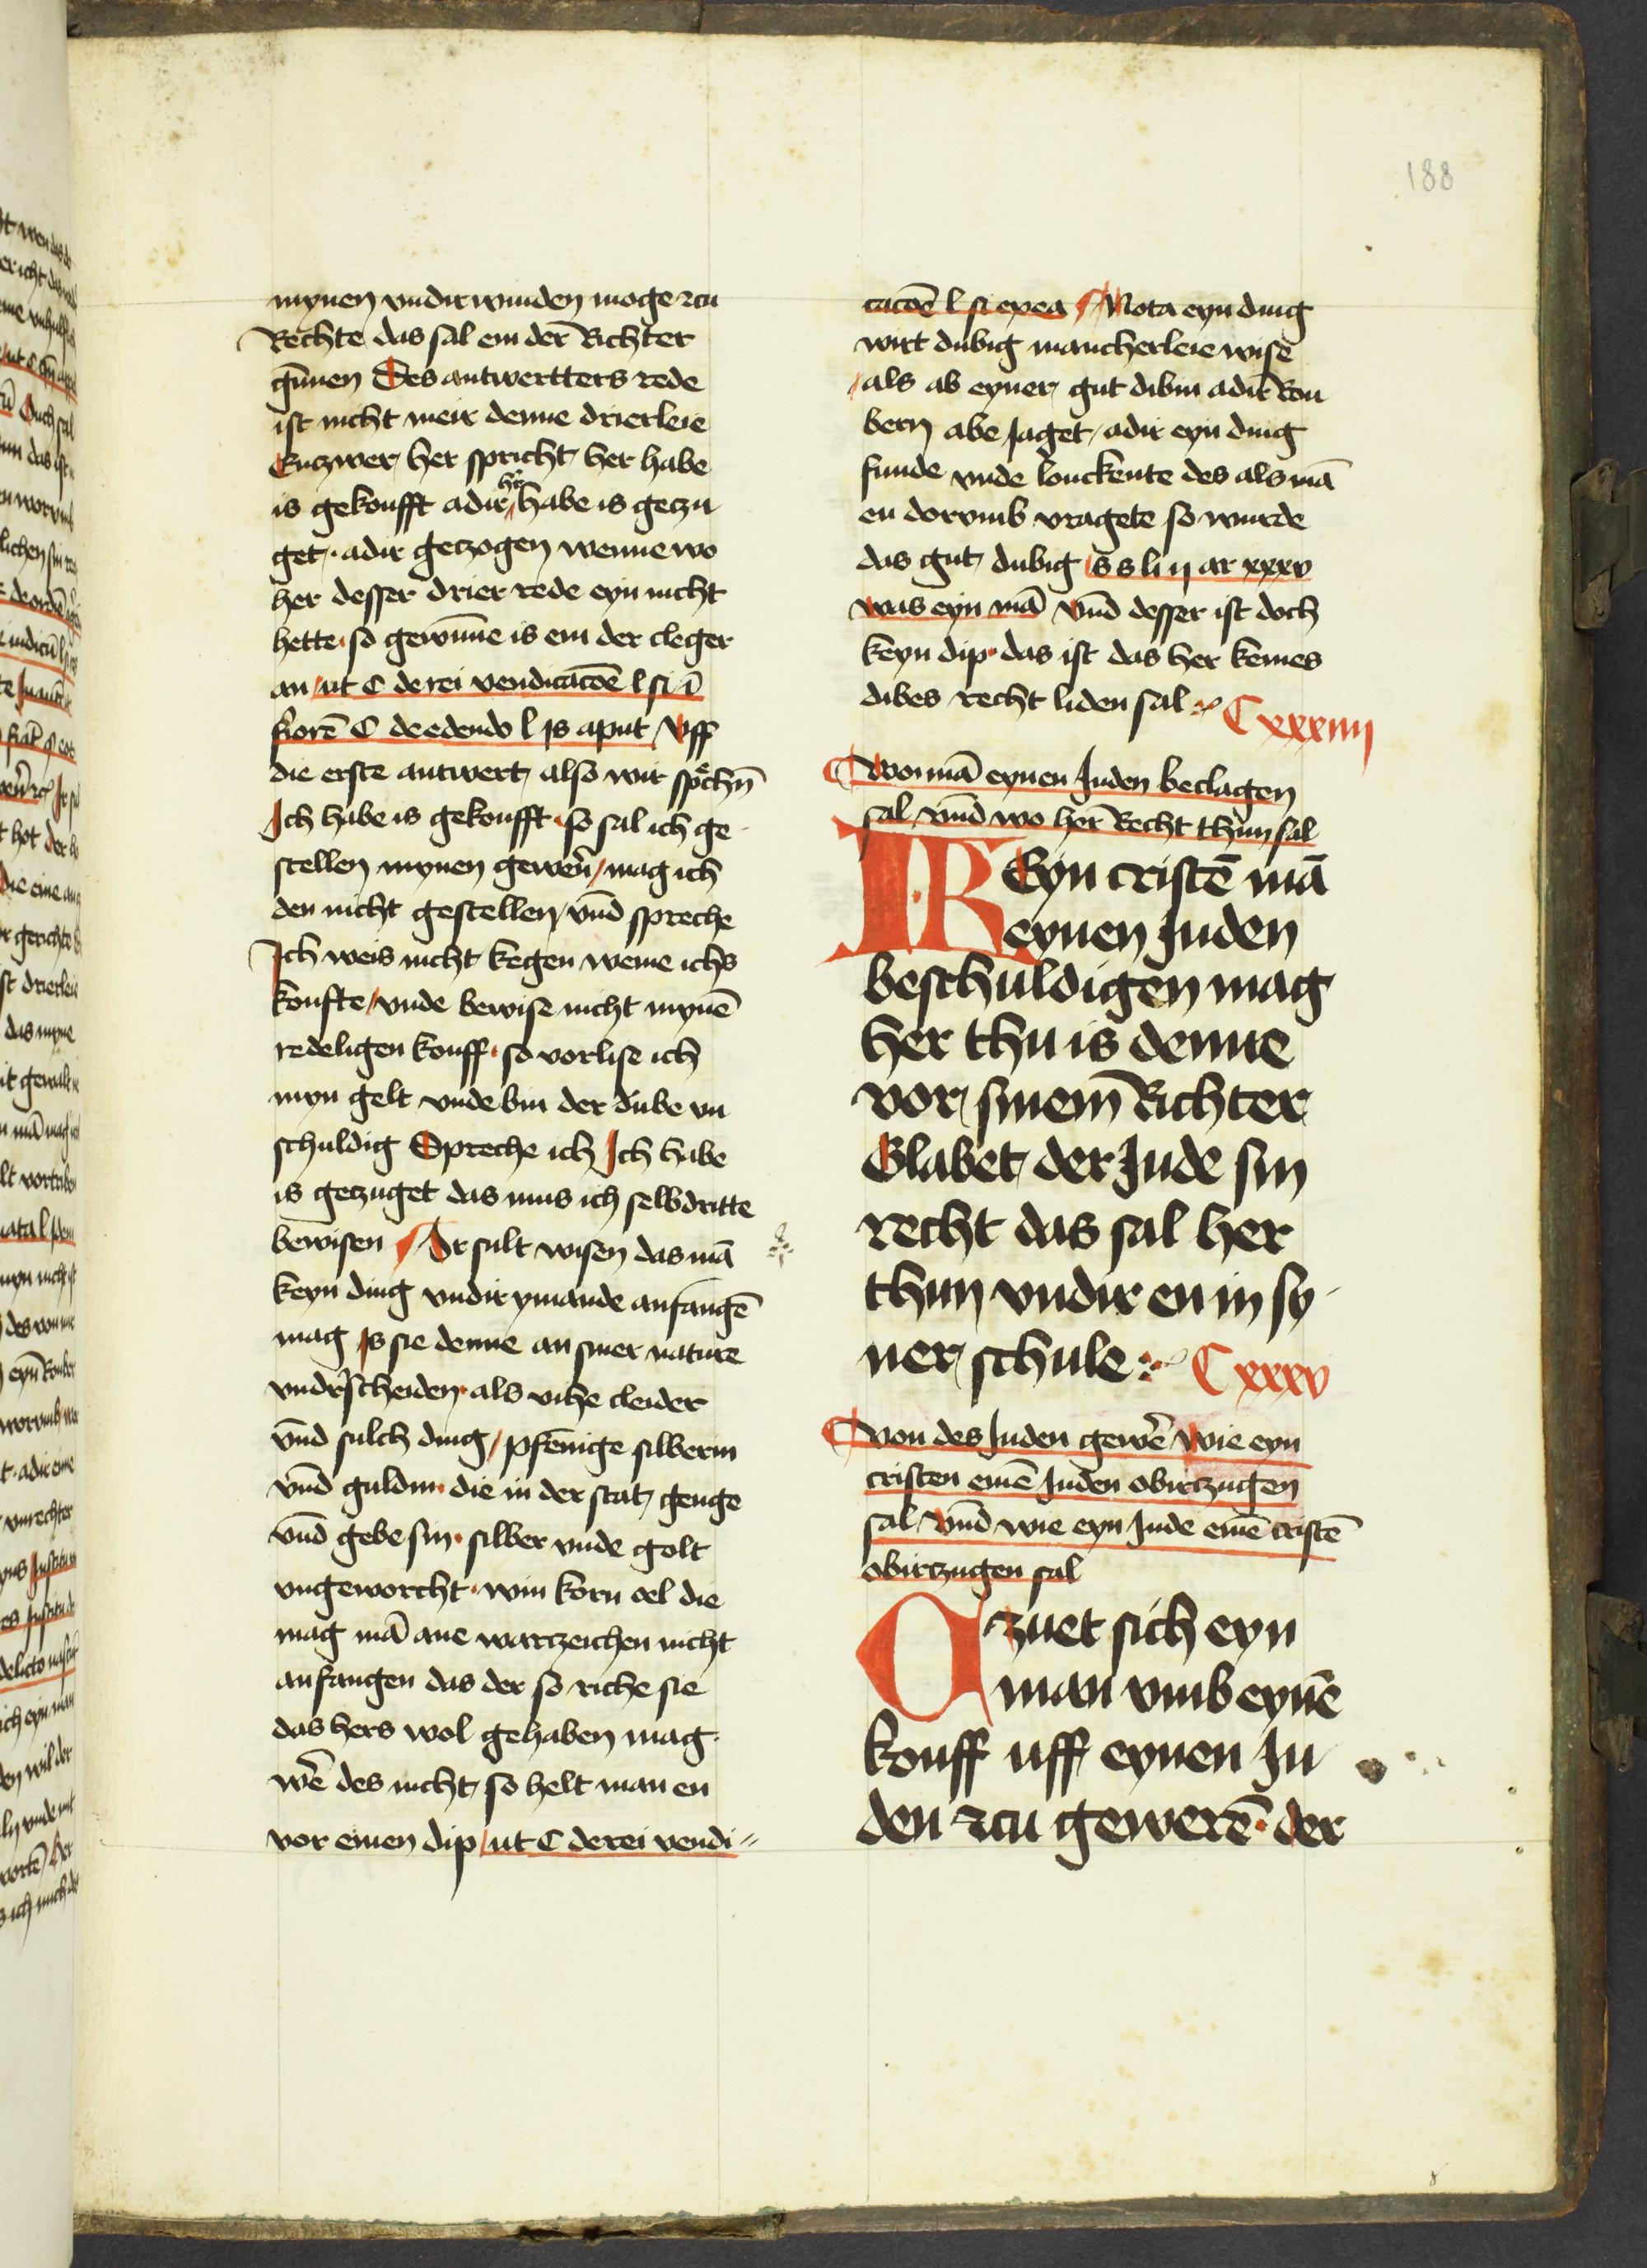 188
mynen vndirwinden moge zcu
Rechte das sal em der Richter
gūnen Des antwertters rede
ist nicht meir denne drierleie
Enczwer her spricht her habe
is gekoufft adir her habe is geczu
get · adir geczogen wenne wo
her desser drier rede eyn nicht
hette · so gewinne is em der cleger
an / ut C de rei vendicacōe l si ī
fiorē C de edendo l is aput / Vff
die erste antwert also wir sprechn̄
Ich habe is gekoufft · so sal ich ge
stellen mynen gewern / mag ich
den nicht gestellen / vnd spreche
Ich weis nicht kegen weme ichs
koufte / vnde bewise nicht mynē
redeligen kouff · so vorlise ich
myn gelt vnde bin der dube vn
schuldig Spreche ich Ich habe
is geczuget das mus ich selbdritte
bewisen / Ir sult wisen das mā
keyn ding vndir ymande anfangē
mag is sie denne an siner nature
vndirscheiden · als vihe cleider
vnd sulch ding / pfenige silberin
vnd guldin · die in der stat genge
vnd gebe sin · silber vnde golt
vngeworcht · win korn oel die
mag mā ane warczeichen nicht
anfangen das der so riche sie
das hers wol gehaben mag ·
wē des nicht so helt man en
vor einen dip / ut C de rei vendi
cacōe l si ex ea / Nota eyn ding
wirt dubig mancherleie wise
/ als ab eyner gut dibin adir Rou
bern abe Jaget / adir eyn ding
funde vnde louckente des als mā
en dorvmb vragete so wurde
das gut dubig / s s li ij ar xxxv
was eyn mā vnd desser ist doch
keyn dip · das ist das her keines
dibes recht liden sal
Cxxxiiij
Wo mā eynen Juden beclagen
sal / vnd wo her Recht thun sal
IR Eyn cristē mā
eynen Juden
beschuldigen mag
her thu is denne
vor sinem Richter
Glabet der Jude sin
recht das sal her
thun vndir en in sy
ner schule
Cxxxv
Von des Juden gewere wie eyn
cristen einē Juden obirczugen
sal / vnd wie eyn Jude einē cristē
obirczugen sal
O zuet sich eyn
man vmb eynē
kouff uff eynen Ju
den zcu gewerē · der